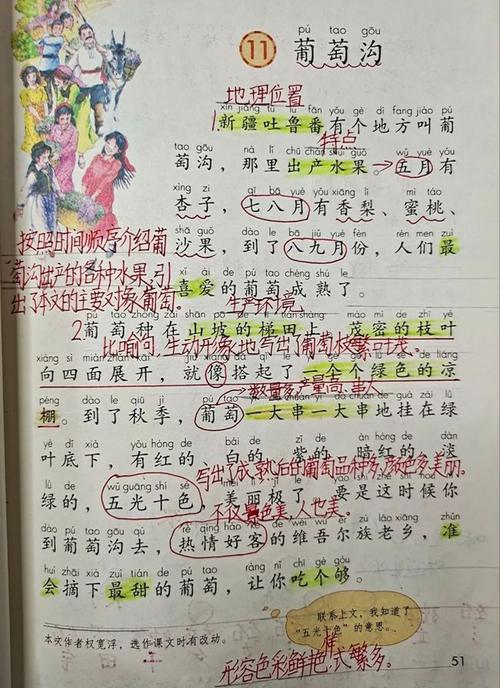 pú tao gōu
11 葡萄沟
地理位置
xīn jiāng tǔ lǔ fān yǒu gè dì fang jiào pú
1.新疆吐鲁番有个地方叫葡
特点
tao gōu nà lǐ chū chǎn shuǐ guǒ wǔ yuè yǒu
萄沟，那里出产水果。五月有
xìng zi qī bā yuè yǒu xiāng lí mì táo
杏子，七八月有香梨、蜜桃、
shā guǒ dào le bā jiǔ yuè fèn rén men zuì
沙果，到了八九月份，人们最
按照时间顺序介绍葡
萄沟出产的各种水果，引
出了本文的主要对象葡萄。
xǐ ài de pú tao chéng shú le
喜爱的葡萄成熟了。
生产环境
pú tao zhòng zài shān pō de tī tián shang mào mì de zhī yè
2.葡萄种在山坡的梯田上。茂密的枝叶
比喻句，生动形象地写出了葡萄枝繁叶茂。
xiàng sì miàn zhǎn kāi jiù xiàng dā qǐ le yí gè gè lǜ sè de liáng
向四面展开，就像搭起了一个个绿色的凉
数量多，产量高，喜人
péng dào le qiū jì pú tao yí dà chuàn yí dà chuàn de guà zài lǜ
棚。到了秋季，葡萄一大串一大串地挂在绿
yè dǐ xià yǒu hóng de bái de zǐ de àn hóng de dàn
叶底下，有红的、白的、紫的、暗红的、淡
写出了成熟后的葡萄品种多，颜色多，美丽。
lǜ de wǔ guāng shí sè
绿的，五光十色，美丽极了。要是这时候你
不仅景色美，人也美。
dào pú tao gōu qù rè qíng hào kè de wéi wú ěr zú lǎo xiāng zhǔn
到葡萄沟去，热情好客的维吾尔族老乡，准
huì zhāi xià zuì tián de pú tao ràng nǐ chī gè gòu
会摘下最甜的葡萄，让你吃个够。
联系上文，我知道了
“五光十色”的意思。
本文作者权宽浮，选作课文时有改动。
形容色彩鲜艳，式样繁多。
51